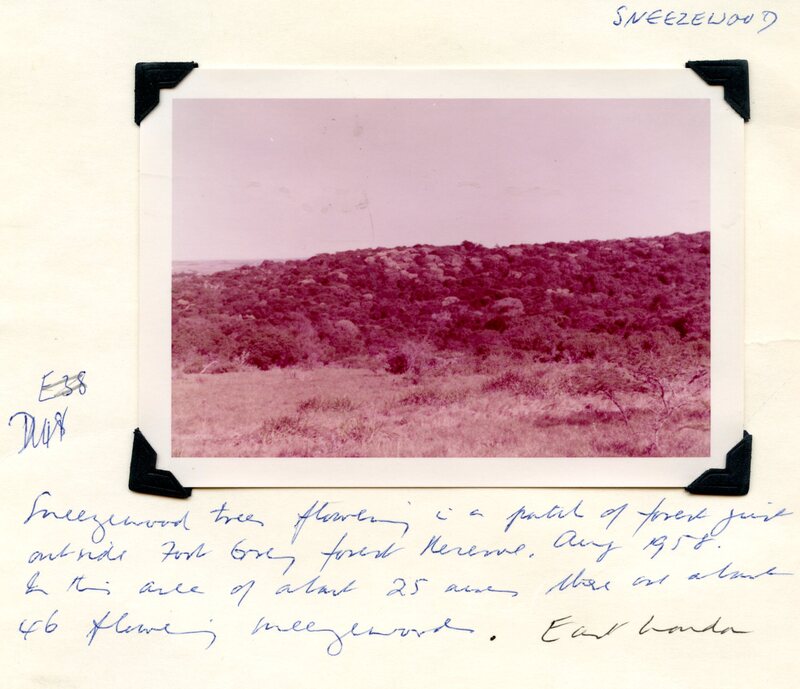 SNEEZEWOOD
E38
D48
Sneezewood trees flowering in a patch of forest just
outside Fort Grey forest Reserve. Aug 1958.
In this area of about 25 acres there are about
46 flowering sneezewoods. East London